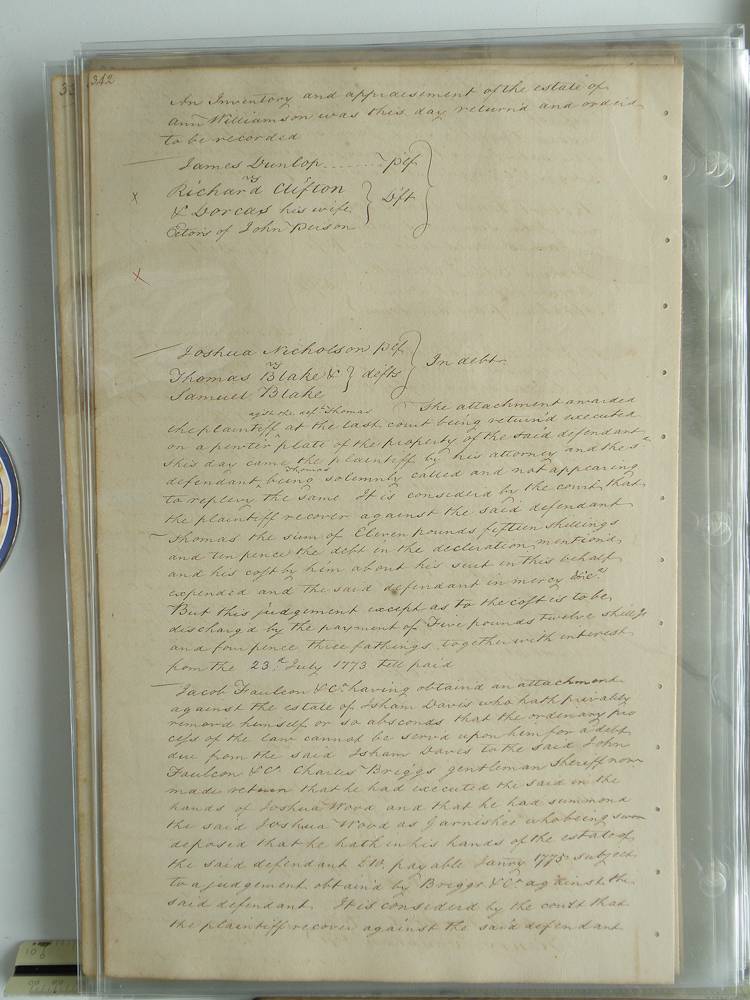 342
33
An Inventory and appraisement of the estate of
Ann Williamson was this day return'd and order'd
to be recorded
James Dunlop plf
vs
Richard Clifton
& Dorcas his wife Dft
Extors of John Person
Joshua Nicholson plf
vs
Thomas Blake & defts In debt
Samuel Blake
agst the deft Thomas The attachment awarded
the plaintiff at the last court being return'd executed
on a pewter plate of the property of the said defendant
This day came the plaintiff by his attorney and the sd
defendant Thomas being solemnly called and not appearing
to replevy the same It is considerd by the court that
the plaintiff recover against the said defendant
Thomas the sum of Eleven pounds fifteen shillings
and ten pence the debt in the decleration mention'd
and his costs by him about his suit in this behalf
expended and the said defendant in mercy &c.
But this judgement except as to the costs is to be
discharg'd by the payment of Five pounds twelve shillgs
and four pence three fathings together with interest
from the 23.d July 1773 till paid
Jacob Faulcon & Co. having obtain'd an attachment
against the estate of Isham Davis who hath privably
remov'd himself or so absconds that the ordenary pro
cess of the law cannot be serv'd upon him for a debt
due from the said Isham Davis to the said John
Faulcon & Co. Charles Briggs gentleman Sheriff now
made return that he had executed the said in the
hands of Joshua Wood and that he had summond
the said Joshua Wood as Garnishee who being sworn
deposed that he hath in his hands of the estate of
the said defendant payable Janry 1775 subject
to a judgement obtain'd by Briggs & Co. against the
said defendant It is considerd by the court that
the plaintiff recover against the said defendant